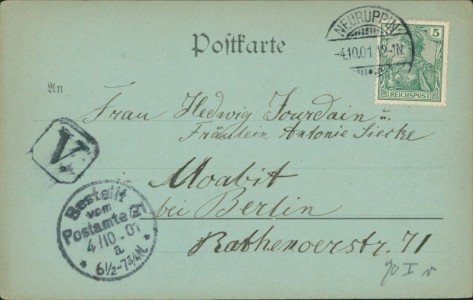 Postkarte
NEURUPPIN
-4.10.01 12-1N.
5
REICHSPOST
An
Frau Hedwig Jourdain u.
Fräulein Antonie Siecke
Moabit
bei Berlin
Rathenoerstr. 71
V.
Bestellt
vom
Postamte 21
4/10.01
a
6½-7¾N.
70 I v